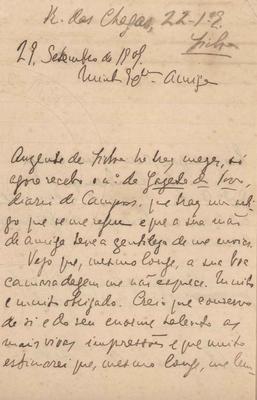 R. das Chagas, 22-1º D.
Lisboa
29. Setembro de 1909.
Minha Exma Amiga
Ausente de Lisboa ha tres mezes, só
agora recebo o nº da Gazeta do Povo,
diario de Campos, que traz um artigo
que se me refere e que a sua mão
de amiga teve a gentileza de me enviar.
Vejo que, mesmo longe, a sua boa
camaradagem me não esquece. Muito
e muito obrigado. Creia que conservo
de si e do seu enorme talento as
mais vivas impressões e que muito
estimarei que, mesmo longe, me lem-